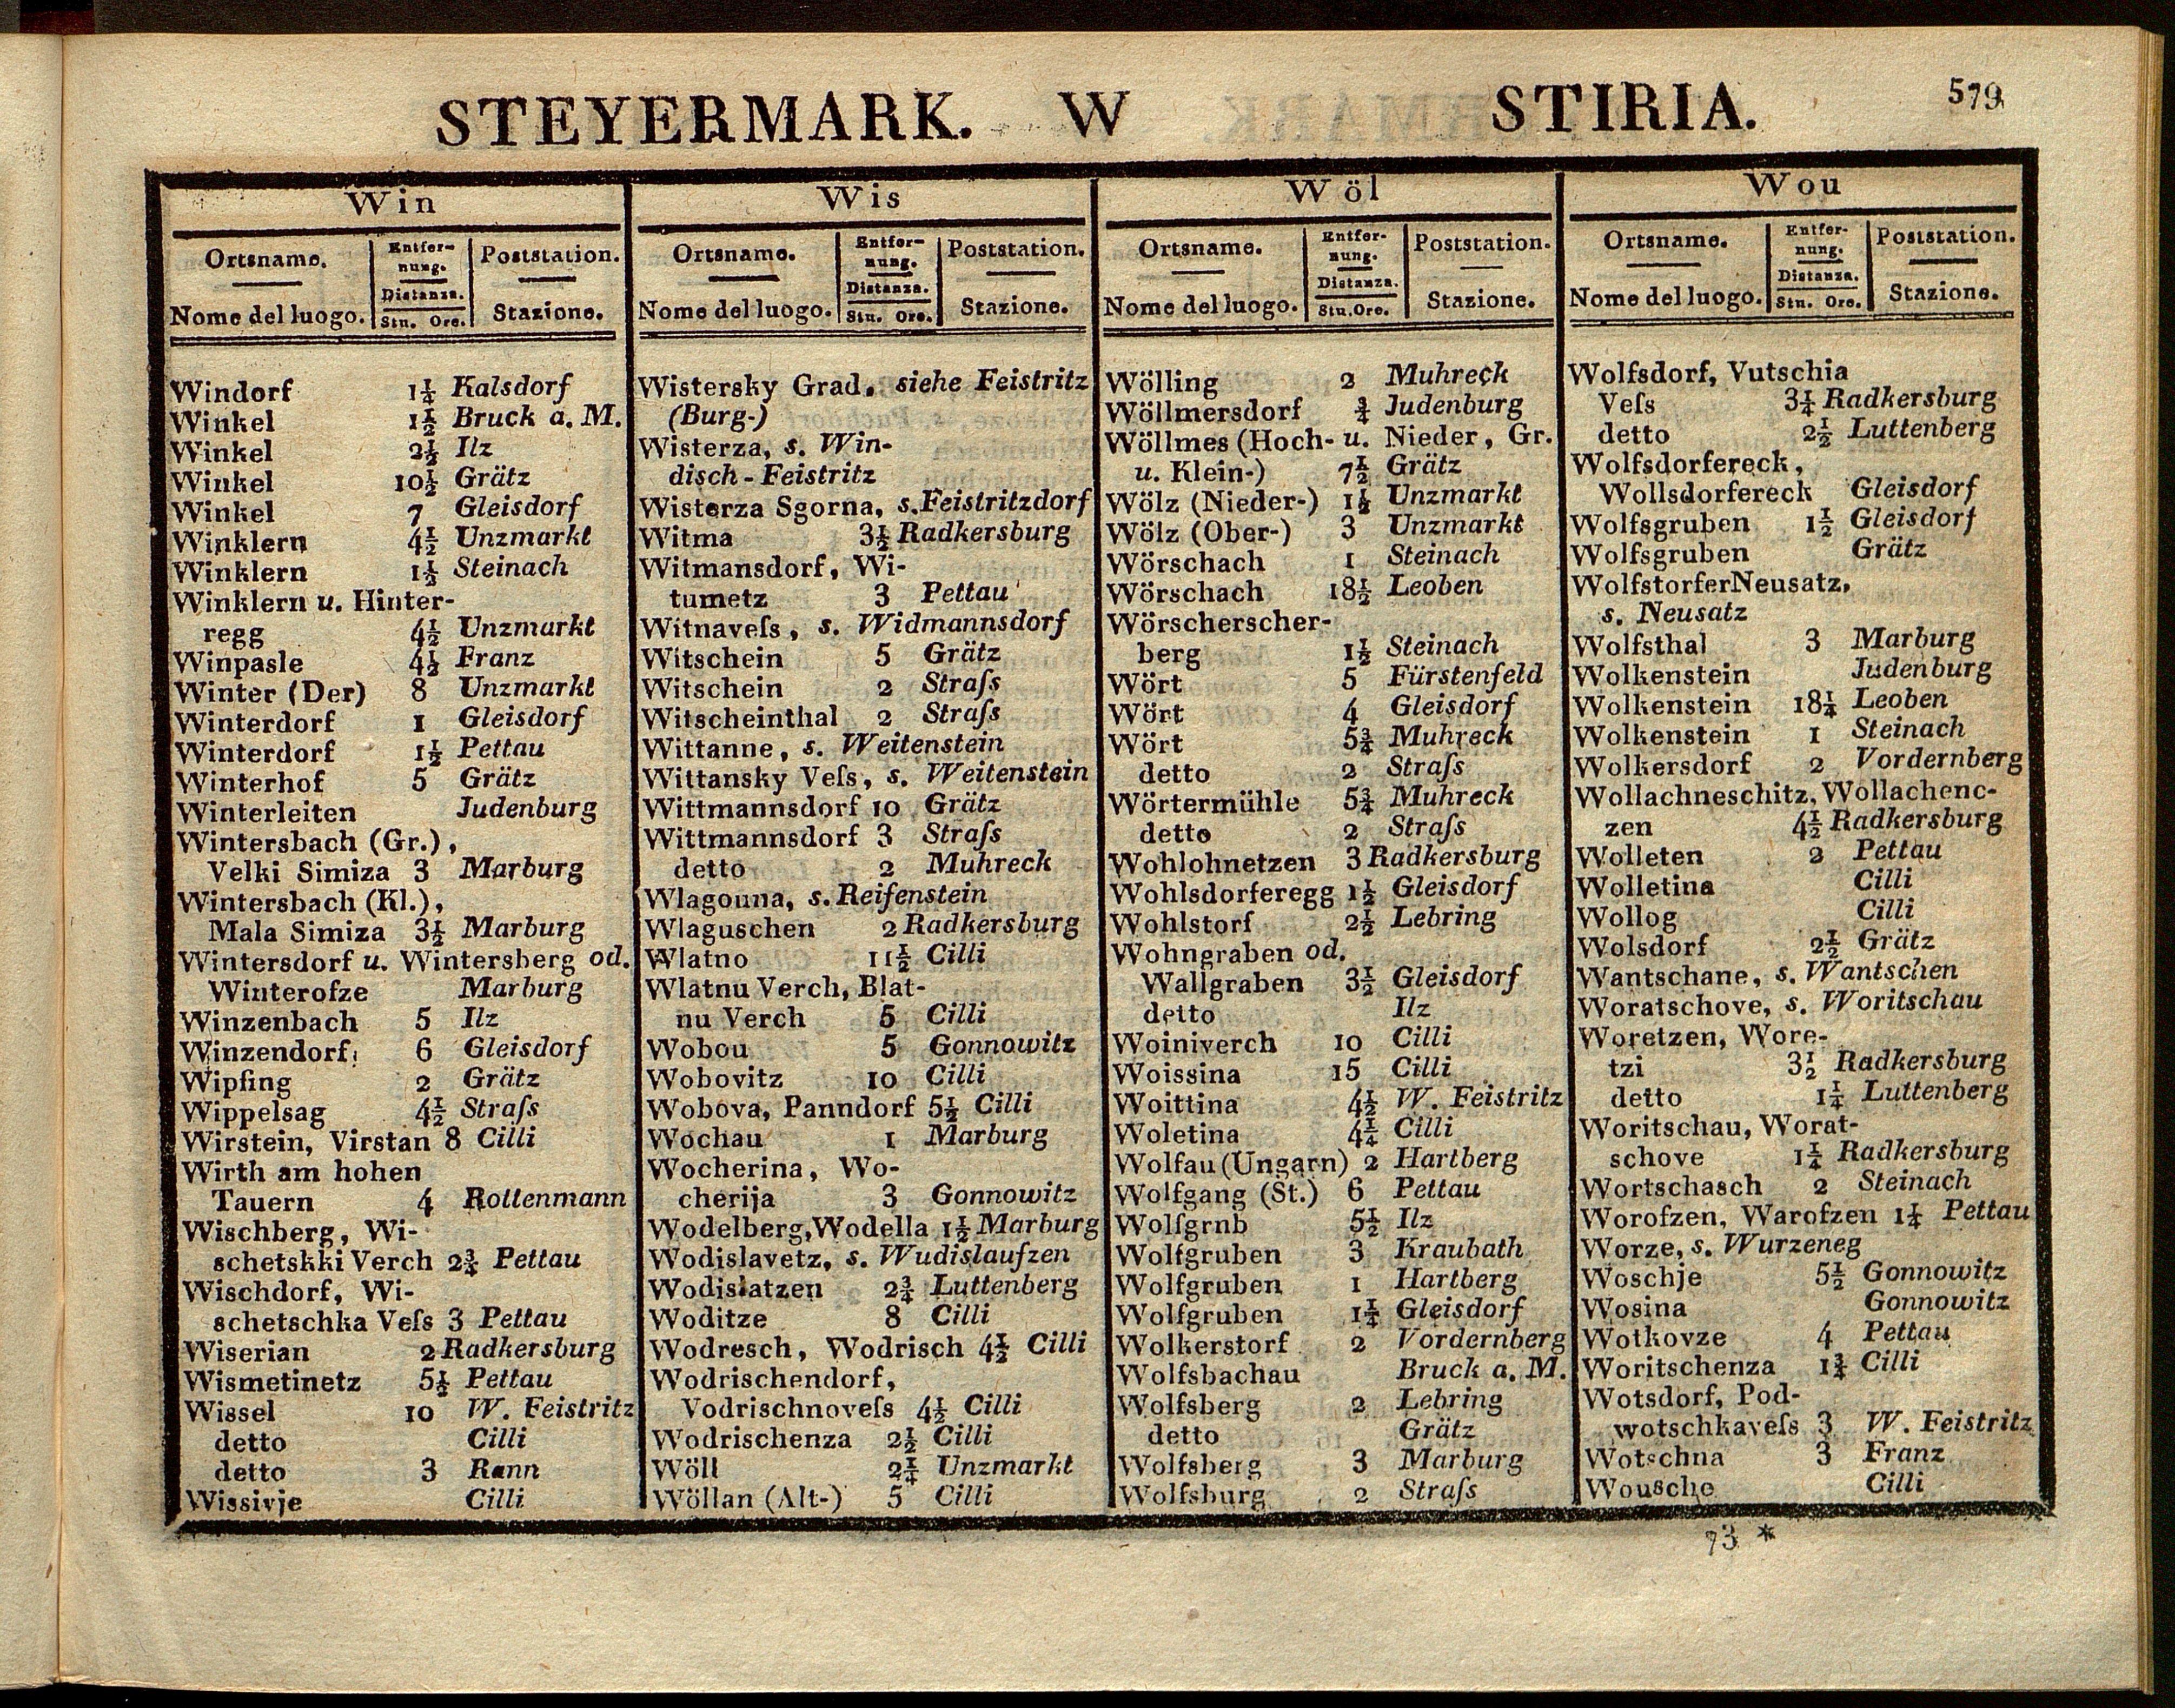 STEYERMARK. W STIRIA. 579
Win
Ortsname. Entfer- Poststation.
nung.
Distanza.
Nome del luogo. Stn. Ore. Stazione.
Windorf 1¼ Kalsdorf
Winkel 1½ Bruck a. M.
Winkel 2½ Ilz
Winkel 10½ Grätz
Winkel 7 Gleisdorf
Winklern 4½ Unzmarkt
Winklern 1½ Steinach
Winklern u. Hinter-
regg 4½ Unzmarkt
Winpasle 4½ Franz
Winter (Der) 8 Unzmarkt
Winterdorf 1 Gleisdorf
Winterdorf 1½ Pettau
Winterhof 5 Grätz
Winterleiten Judenburg
Wintersbach (Gr.),
Velki Simiza 3 Marburg
Wintersbach (Kl.),
Mala Simiza 3½ Marburg
Wintersdorf u. Wintersberg od.
Winterofze Marburg
Winzenbach 5 Ilz
Winzendorf 6 Gleisdorf
Wipſing 2 Grätz
Wippelsag 4½ Straſs
Wirstein, Virstan 8 Cilli
Wirth am hohen
Tauern 4 Rottenmann
Wischberg, Wi-
schetskki Verch 2¾ Pettau
Wischdorf, Wi-
schetschka Veſs 3 Pettau
Wiserian 2 Radkersburg
Wismetinetz 5½ Pettau
Wissel 10 W. Feistritz
detto Cilli
detto 3 Rann
Wissivje Cilli
Wis
Ortsname. Entfer- Poststation.
nung.
Distanza.
Nome del luogo. Stn. Ore. Stazione.
Wistersky Grad, siehe Feistritz
(Burg-)
Wisterza, s. Win-
disch-Feistritz
Wisterza Sgorna, s. Feistritzdorf
Witma 3½ Radkersburg
Witmansdorf, Wi-
tumetz 3 Pettau
Witnaveſs, s. Widmannsdorf
Witschein 5 Grätz
Witschein 2 Straſs
Witscheinthal 2 Straſs
Wittanne, s. Weitenstein
Wittansky Veſs, s. Weitenstein
Wittmannsdorf 10 Grätz
Wittmannsdorf 3 Straſs
detto 2 Muhreck
Wlagouna, s. Reifenstein
Wlaguschen 2 Radkersburg
Wlatno 11½ Cilli
Wlatnu Verch, Blat-
nu Verch 5 Cilli
Wobou 5 Gonnowitz
Wobovitz 10 Cilli
Wobova, Panndorf 5½ Cilli
Wochau 1 Marburg
Wocherina, Wo-
cherija 3 Gonnowitz
Wodelberg, Wodella 1½ Marburg
Wodislavetz, s. Wudislaufzen
Wodislatzen 2¾ Luttenberg
Woditze 8 Cilli
Wodresch, Wodrisch 4½ Cilli
Wodrischendorf,
Vodrischnoveſs 4½ Cilli
Wodrischenza 2½ Cilli
Wöll 2¼ Unzmarkt
Wöllan (Alt-) 5 Cilli
Wöl
Ortsname. Entfer- Poststation.
nung.
Distanza.
Nome del luogo. Stn. Ore. Stazione.
Wölling 2 Muhreck
Wöllmersdorf ¾ Judenburg
Wöllmes (Hoch- u. Nieder, Gr.
u. Klein-) 7½ Grätz
Wölz (Nieder-) 1½ Unzmarkt
Wölz (Ober-) 3 Unzmarkt
Wörschach 1 Steinach
Wörschach 18½ Leoben
Wörscherscher-
berg 1½ Steinach
Wört 5 Fürstenfeld
Wört 4 Gleisdorf
Wört 5¾ Muhreck
detto 2 Straſs
Wörtermühle 5¾ Muhreck
detto 2 Straſs
Wohlohnetzen 3 Radkersburg
Wohlsdorferegg 1½ Gleisdorf
Wohlstorf 2½ Lebring
Wohngraben od.
Wallgraben 3½ Gleisdorf
detto Ilz
Woiniverch 10 Cilli
Woissina 15 Cilli
Woittina 4½ W. Feistritz
Woletina 4¼ Cilli
Wolfau (Ungarn) 2 Hartberg
Wolfgang (St.) 6 Pettau
Wolfgrnb 5½ Ilz
Wolfgruben 3 Kraubath
Wolfgruben 1 Hartberg
Wolfgruben 1¼ Gleisdorf
Wolkerstorf 2 Vordernberg
Wolfsbachau Bruck a. M.
Wolfsberg 2 Lebring
detto Grätz
Wolfsberg 3 Marburg
Wolfsburg 2 Straſs
Wou
Ortsname. Entfer- Poststation.
nung.
Distanza.
Nome del luogo. Stn. Ore. Stazione.
Wolfsdorf, Vutschia
Veſs 3¼ Radkersburg
detto 2½ Luttenberg
Wolfsdorfereck,
Wollsdorfereck Gleisdorf
Wolfsgruben 1½ Gleisdorf
Wolfsgruben Grätz
WolfstorferNeusatz,
s. Neusatz
Wolfsthal 3 Marburg
Wolkenstein Judenburg
Wolkenstein 18¼ Leoben
Wolkenstein 1 Steinach
Wolkersdorf 2 Vordernberg
Wollachneschitz, Wollachenc-
zen 4½ Radkersburg
Wolleten 2 Pettau
Wolletina Cilli
Wollog Cilli
Wolsdorf 2½ Grätz
Wantschane, s. Wantschen
Woratschove, s. Woritschau
Woretzen, Wore-
tzi 3½ Radkersburg
detto 1¼ Luttenberg
Woritschau, Worat-
schove 1¼ Radkersburg
Wortschasch 2 Steinach
Worofzen, Warofzen 1¼ Pettau
Worze, s. Wurzeneg
Woschje 5½ Gonnowitz
Wosina Gonnowitz
Wotkovze 4 Pettau
Woritschenza 1¾ Cilli
Wotsdorf, Pod-
wotschkaveſs 3 W. Feistritz
Wotschna 3 Franz
Wousche Cilli
73 *